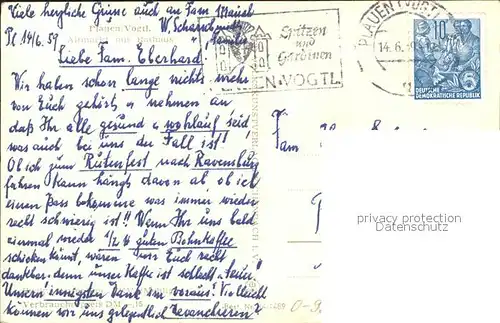 Viele herzliche Grüsse auch an Fam. Maisel
W. Schan
Plauen-Vogtl.
Pl 14/6. 59
Liebe Fam. Eberhard!
Wir haben schon lange nichts mehr
von Euch gehört u nehmen an
daß Ihr alle gesund u wohlauf seid,
was auch bei uns der Fall ist!
Ob ich zum Rutenfest nach Ravensburg
fahren kann hängt davon ab ob ich
einen Pass bekomme was immer wieder
recht schwierig ist!! Wenn Ihr uns bald
einmal wieder 1/2 guten Bohnkaffee
schicken könnt, wären wir Euch recht
dankbar, denn unser Kaffee ist schlecht u teuer.
Unsern innigsten Dank im voraus! Vielleicht
können wir uns gelegentlich Revanchieren!
Verbraucherpreis DM
Spitzen
und
Gardinen
PLAUEN-VOGTL
PLAUEN (VOGTL)
14.6.
10
DEUTSCHE
DEMOKRATISCHE REPUBLIK
Fam
privacy protection
Datenschutz